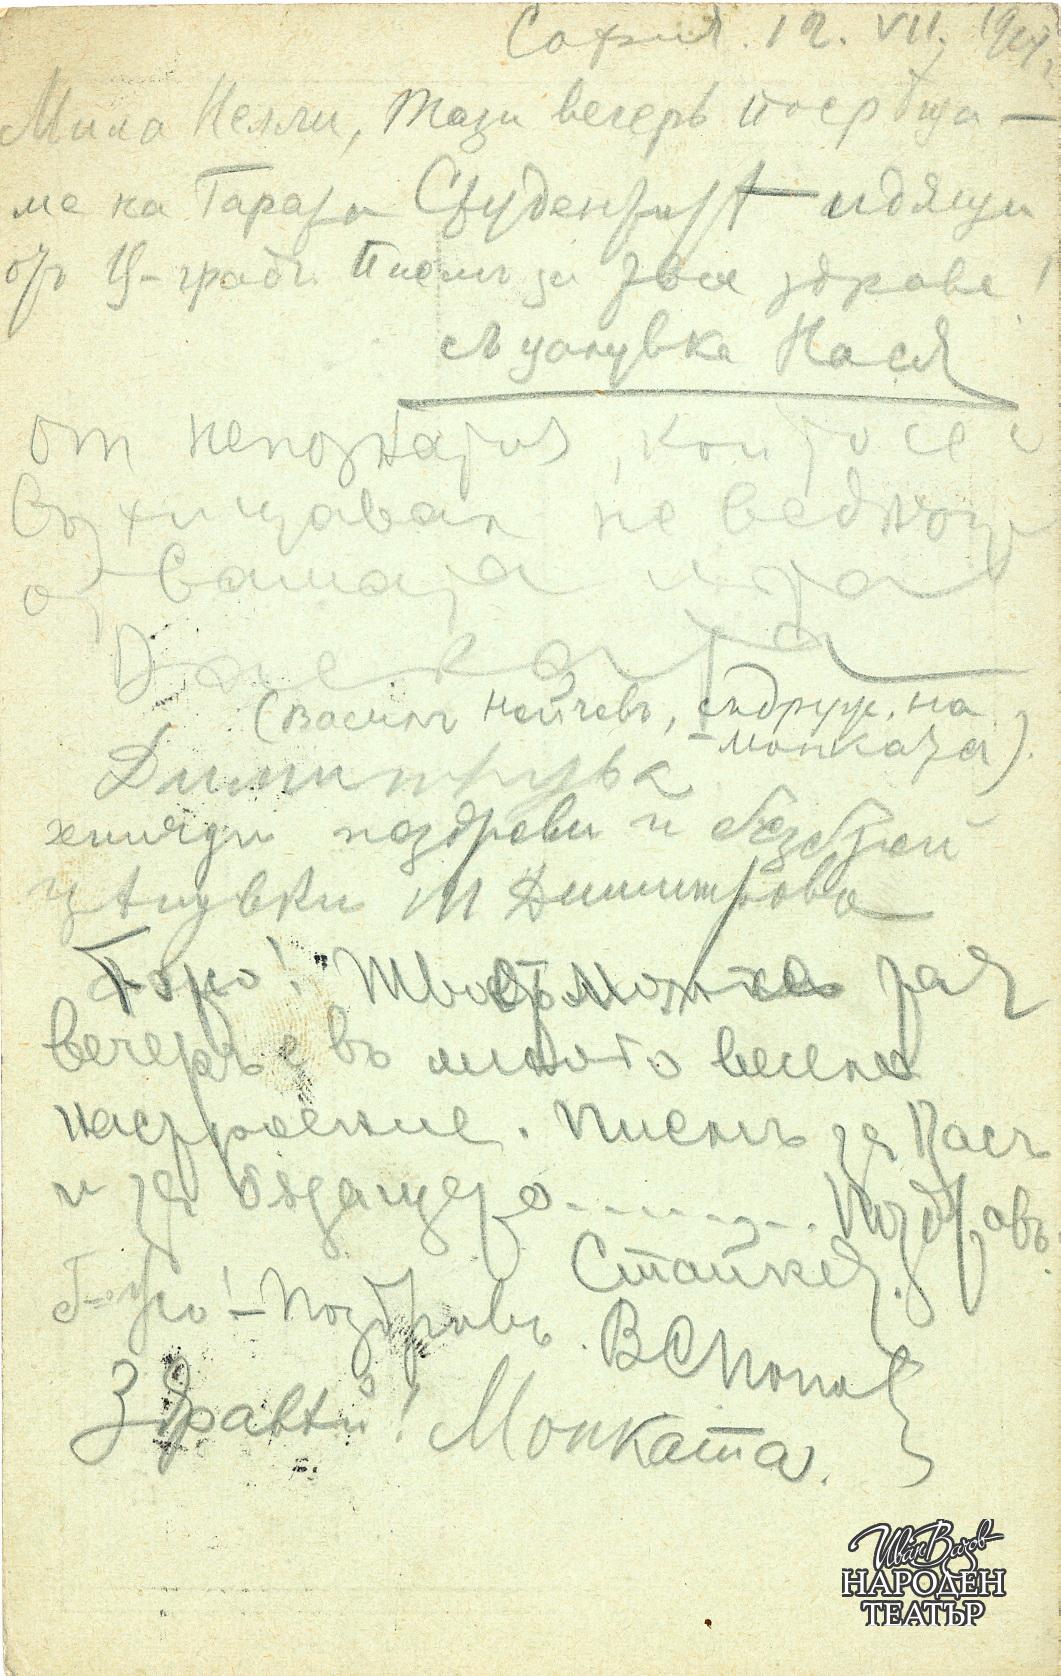 София. 12. VII. 19
Мила Нелли, тази вечерь посрѣща—
ме на Гарата Студентит— идящи
отъ Ц-градъ. Пиемъ за твое здраве!
съ цѣлувка Нася
от непознатия, който се е
възхищавал не веднъж
от вашата игра
(Василъ Нейчевъ, съдруж. на
-мопката).
Димитрува
хиляди поздрави и безброй
целувки М Димитрова
Гоуо! Твоятъ можка тая
вечеръ е въ много весело
настроение. Пиемъ за Васъ
и за бѫдащето........ Поздравъ.
Стайкея.
Поздравъ. В С Попов
Здравей! Мопката.
Иван Вазов
НАРОДЕН
ТЕАТЪР